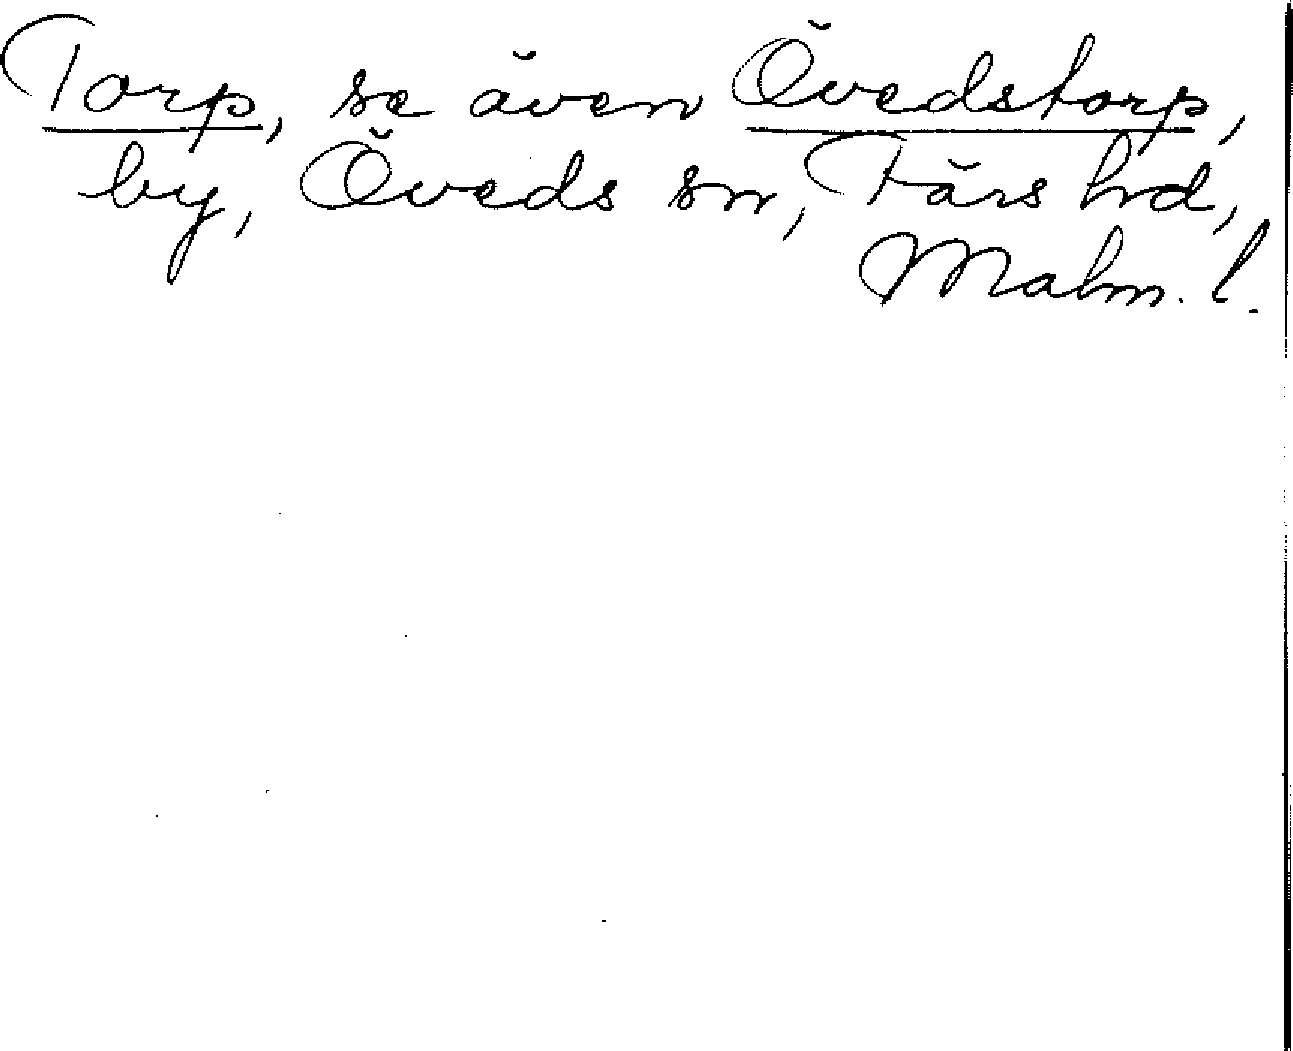 Torp, se även Övedstorp,
by, Öveds sn, Färs hd,
Malm. l.